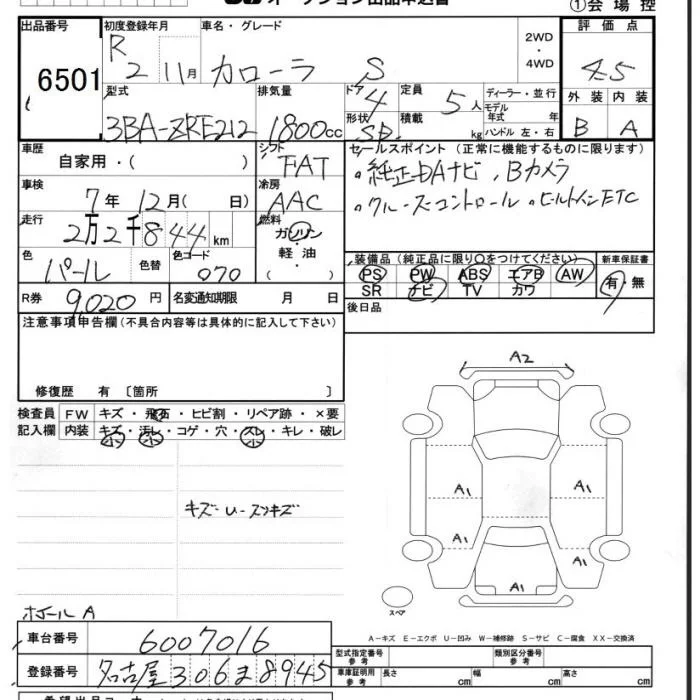 オークション出品申込書
①会場控
出品番号 初度登録年月 車名・グレード 評価点
6501 R2 11月 カローラ S 2WD・4WD 4.5
型式 排気量 ドア 定員 ディーラー・並行 外装 内装
3BA-ZRE212 1800cc 4 5人 モデル年式 年 B A
形状 積載 kg ハンドル 左・右
車歴 シフト セールスポイント(正常に機能するものに限ります)
自家用・( ) FAT 。純正DAナビ、Bカメラ
車検 冷房 。クルーズコントロール 。ビルトインETC
7年 12月( 日) AAC
走行 燃料
2万2千844km ガソリン・軽油・( )
色 色替 色コード 装備品(純正品に限り○をつけてください) 新車保証書
パール 070 PS PW ABS エアB AW 有・無
R券 9,020円 名変通知期限 月 日 SR ナビ TV カワ
後日品
注意事項申告欄(不具合内容等は具体的に記入して下さい)
修復歴 有 〔箇所 〕
検査員 FW キズ・飛石・ヒビ割・リペア跡・×要
記入欄 内装 キズ・汚レ・コゲ・穴・スレ・キレ・破レ
小 小 小
A2
A1 A1
A1 A1
A1
スペア
ホイールA
A-キズ E-エクボ U-凹み W-補修跡 S-サビ C-腐食 XX-交換済
車台番号 6007016 型式指定番号 参考 類別区分番号 参考
登録番号 名古屋306 8945 車庫証明用 参考 長さ cm 幅 cm 高さ cm
希望出品コーナー